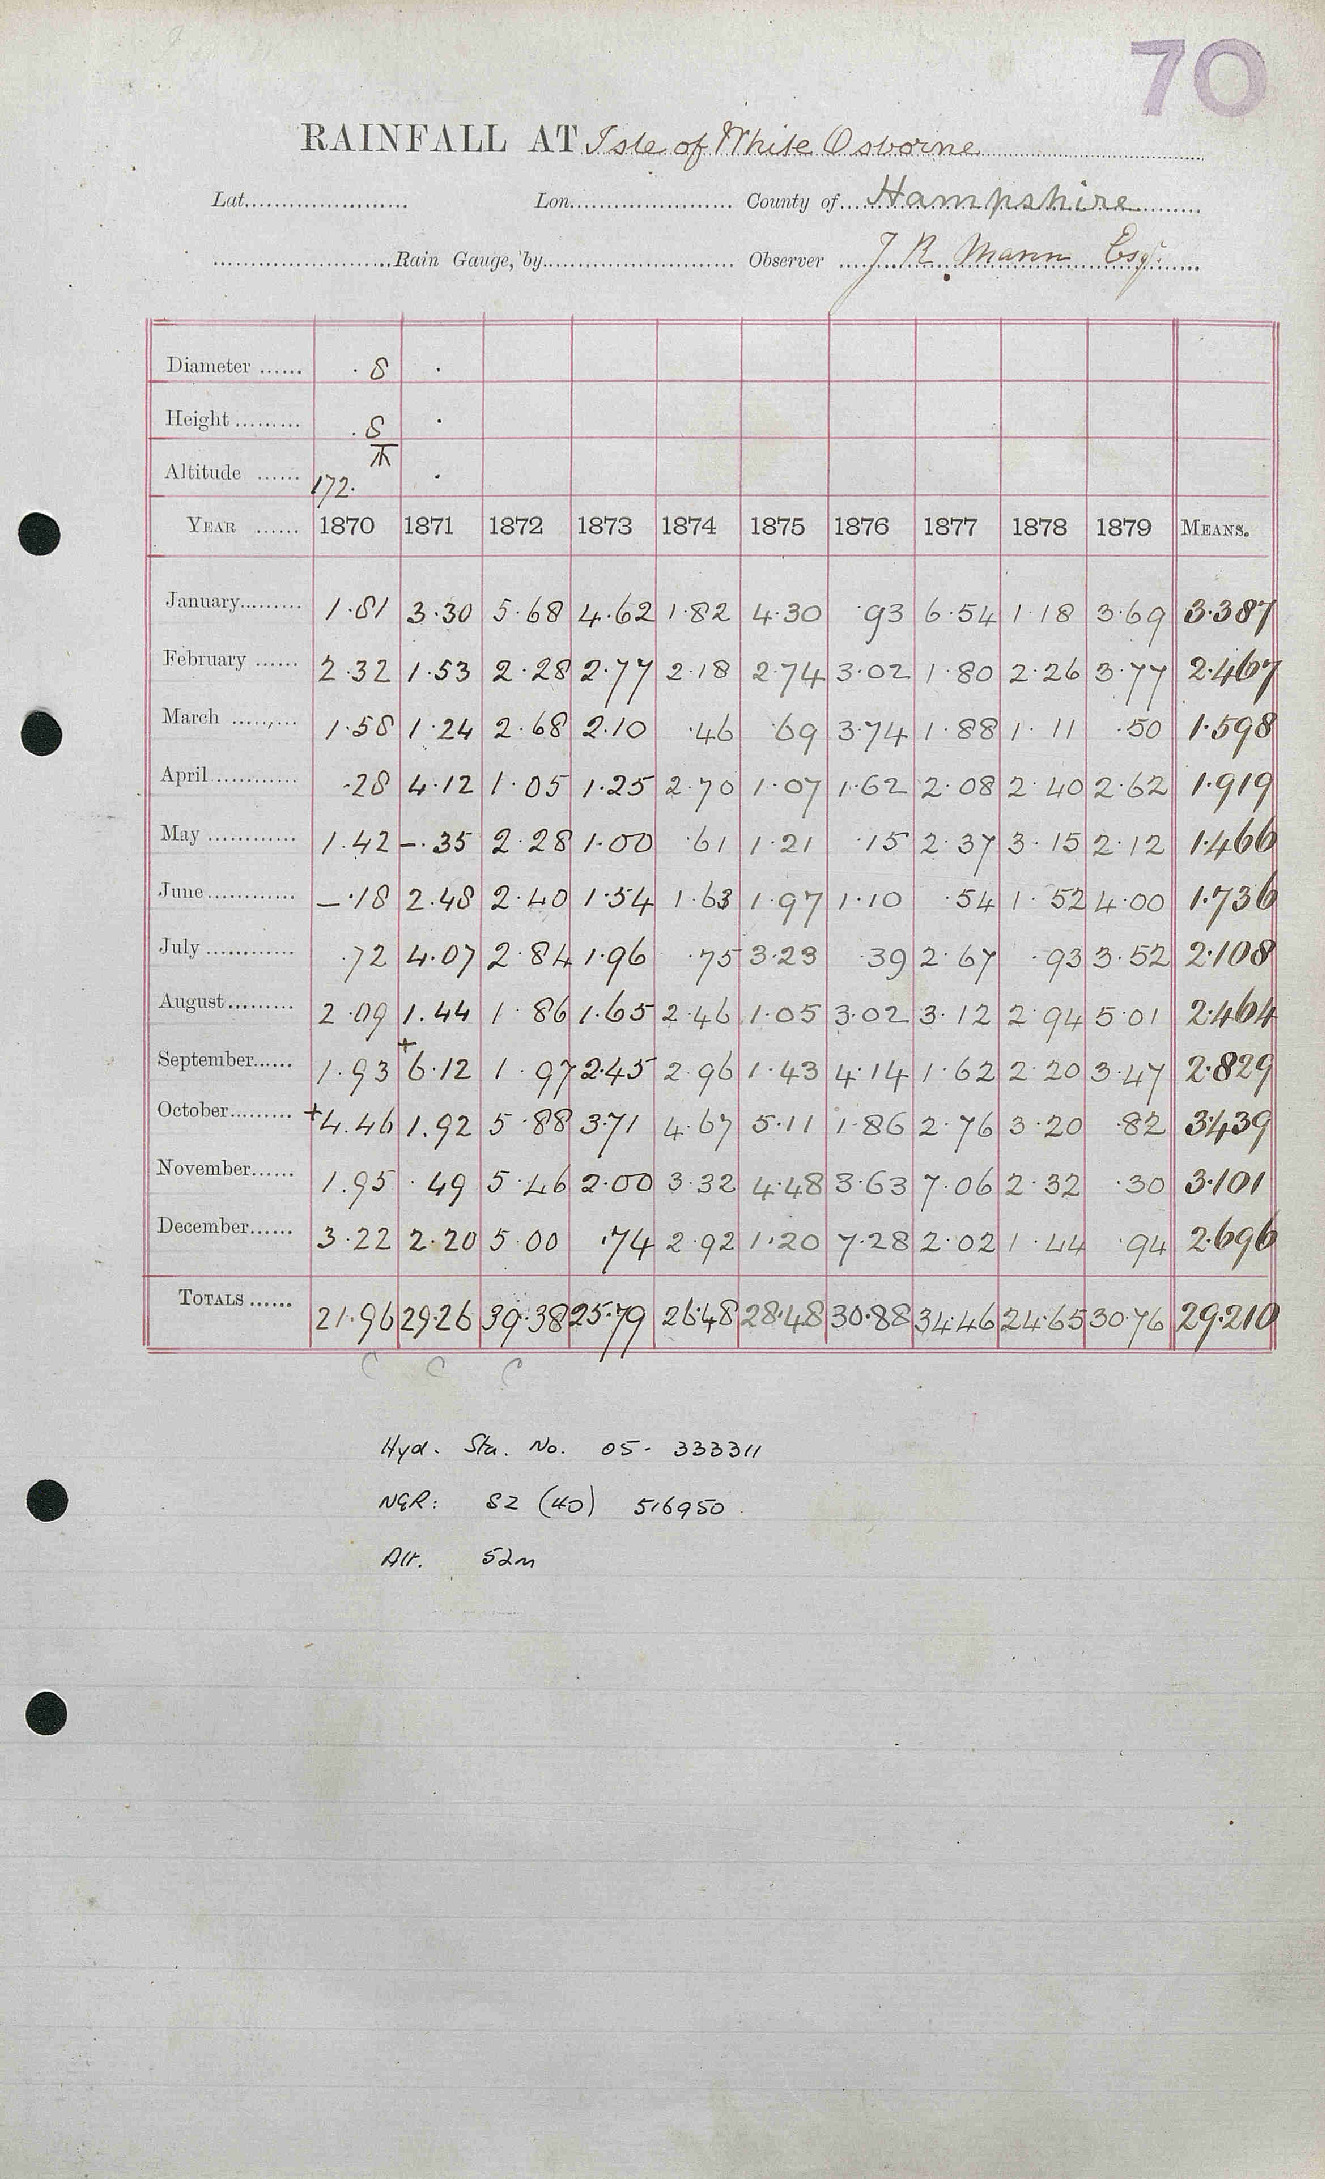 70
RAINFALL AT Isle of White Osborne
Lat. Lon. County of Hampshire
Rain Gauge, by Observer J R Mann Esqr.
Diameter ...... .8 .
Height ......... .8 .
Altitude ...... 172. .
YEAR ...... 1870 1871 1872 1873 1874 1875 1876 1877 1878 1879 MEANS.
January......... 1.81 3.30 5.68 4.62 1.82 4.30 .93 6.54 1.18 3.69 3.387
February ...... 2.32 1.53 2.28 2.77 2.18 2.74 3.02 1.80 2.26 3.77 2.467
March ......... 1.58 1.24 2.68 2.10 .46 .69 3.74 1.88 1.11 .50 1.598
April ............ .28 4.12 1.05 1.25 2.70 1.07 1.62 2.08 2.40 2.62 1.919
May ............ 1.42 -.35 2.28 1.00 .61 1.21 .15 2.37 3.15 2.12 1.466
June ............ -.18 2.48 2.40 1.54 1.63 1.97 1.10 .54 1.52 4.00 1.736
July ............ .72 4.07 2.84 1.96 .75 3.23 .39 2.67 .93 3.52 2.108
August ......... 2.09 1.44 1.86 1.65 2.46 1.05 3.02 3.12 2.94 5.01 2.464
September...... 1.93 +6.12 1.97 2.45 2.96 1.43 4.14 1.62 2.20 3.47 2.829
October ......... +4.46 1.92 5.88 3.71 4.67 5.11 1.86 2.76 3.20 .82 3.439
November ...... 1.95 .49 5.46 2.00 3.32 4.48 3.63 7.06 2.32 .30 3.101
December ...... 3.22 2.20 5.00 .74 2.92 1.20 7.28 2.02 1.44 .94 2.696
TOTALS ...... 21.96 29.26 39.38 25.79 26.48 28.48 30.88 34.46 24.65 30.76 29.210
C C C
Hyd. Sta. No. 05- 333311
NGR: SZ (40) 516950.
Alt. 52m